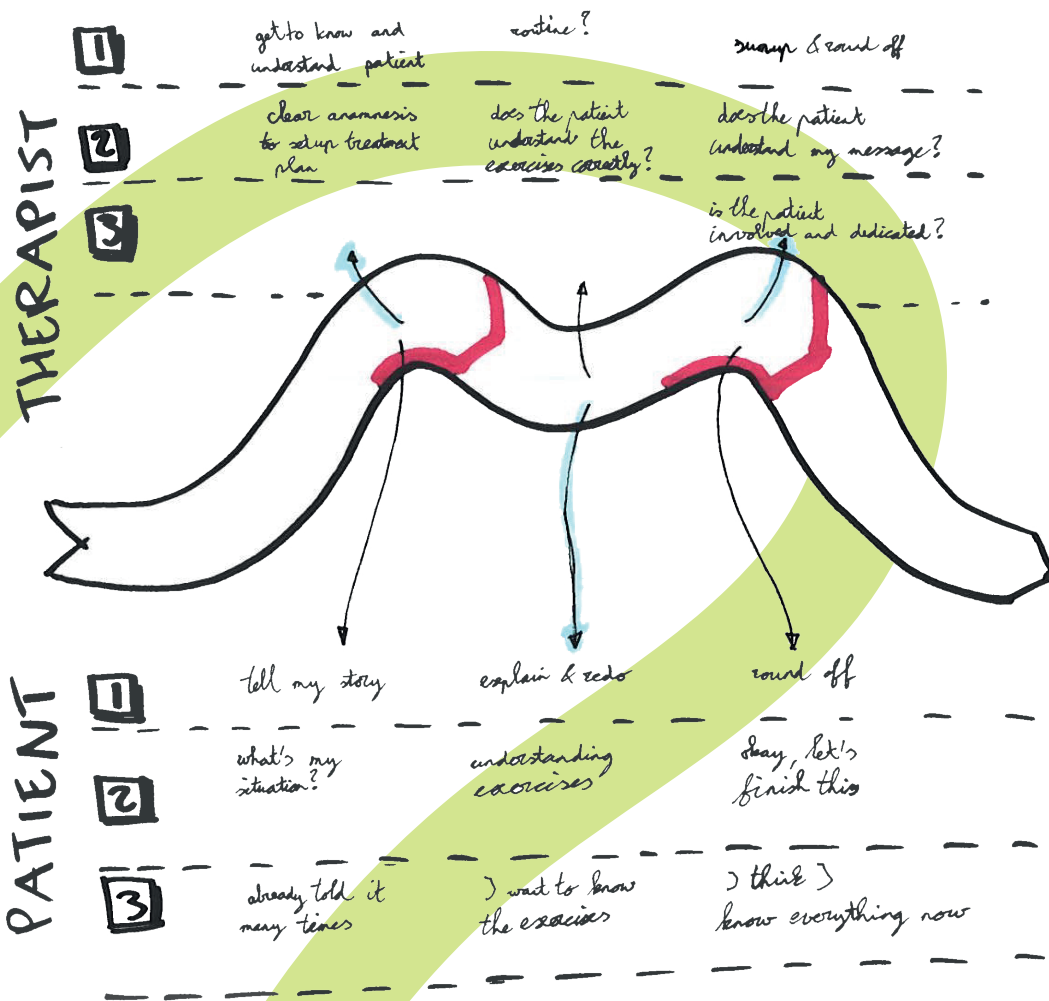 THERAPIST
1
get to know and
understand patient
routine?
sumup & round off
2
clear anamnesis
to setup treatment
plan
does the patient
understand the
exercises correctly?
does the patient
understand my message?
3
is the patient
involved and dedicated?
PATIENT
1
tell my story
explain & redo
round off
2
what's my
situation?
understanding
exercises
okay, let's
finish this
3
already told it
many times
I want to know
the exercises
I think I
know everything now